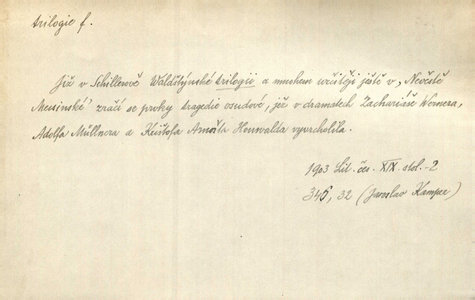 trilogie f.
Již v Schillerově Waldštýnské trilogii a mnohem určitěji ještě v „Nevěstě
Messinské" zračí se prvky tragedie osudové, již v dramatech Zachariáše Wernera,
Adolfa Müllnera a Krištofa Arnošta Houwalda vyvrcholila.
1903 Lit. čes. XIX. stol.-2
345, 32 (Jaroslav Kamper)